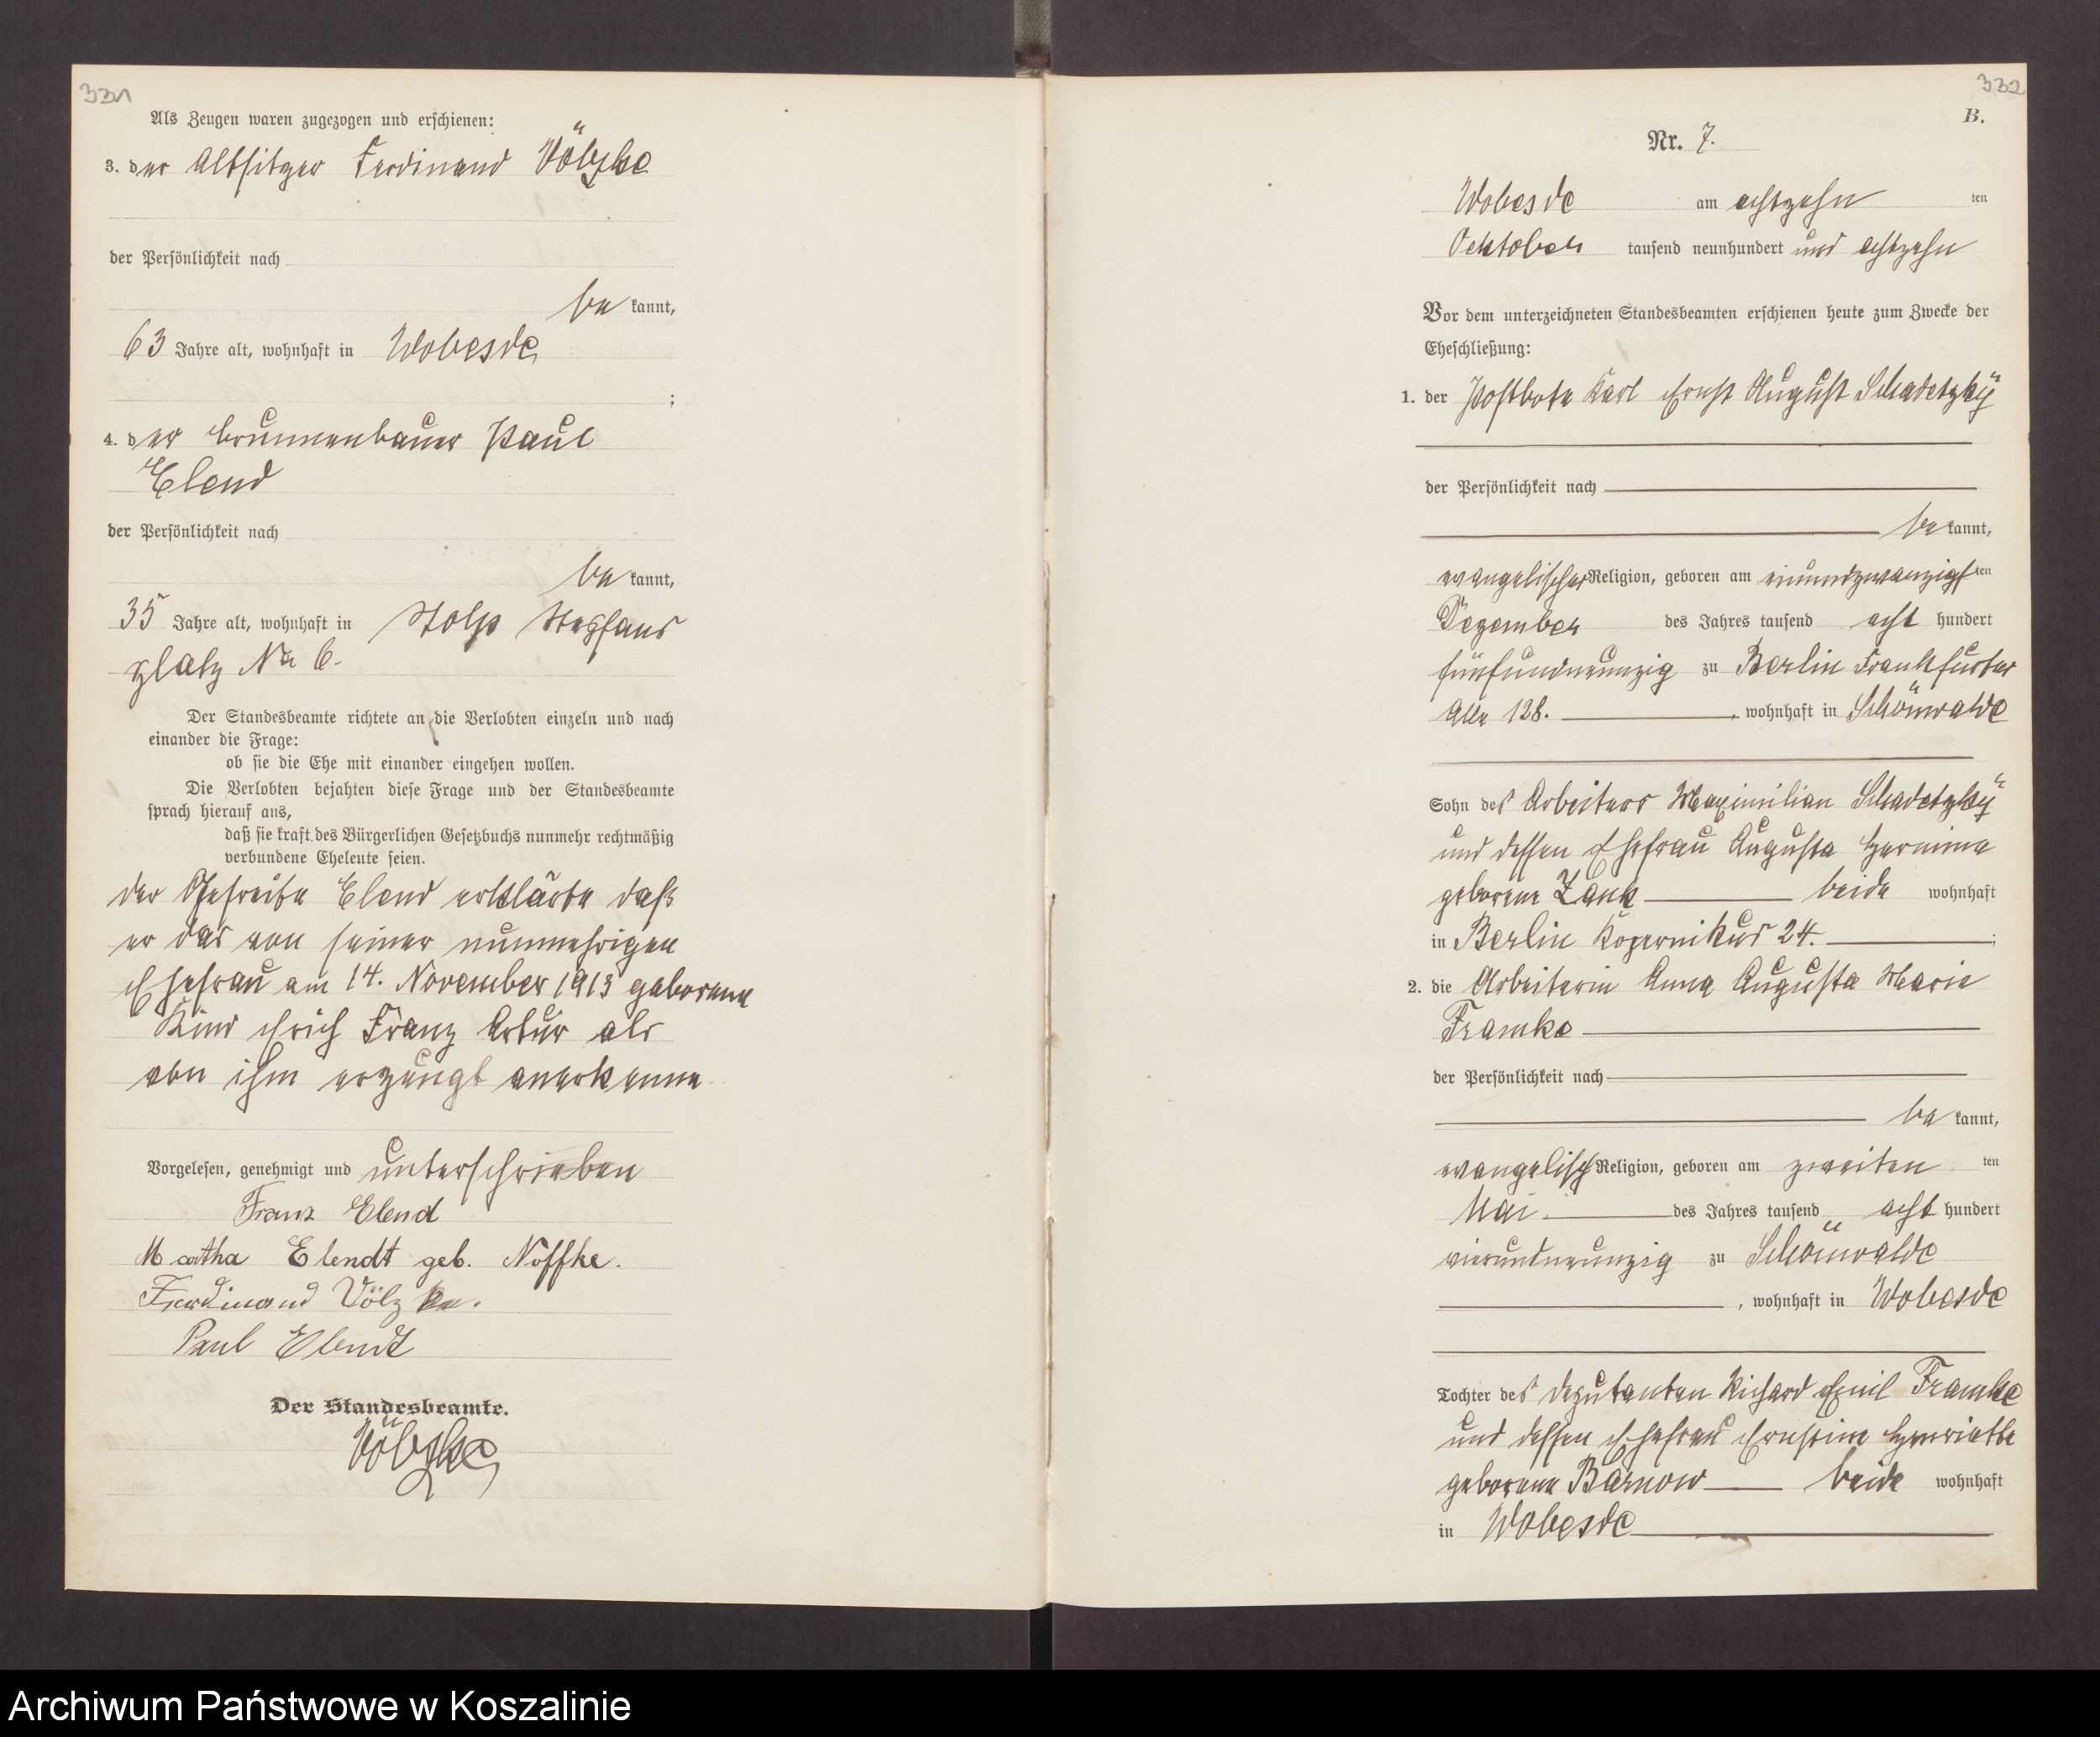 331
Als Zeugen waren zugezogen und erschienen:
3. der Altsitzer Ferdinand Völzke
der Persönlichkeit nach
be kannt,
63 Jahre alt, wohnhaft in Wobesde
;
4. der Brunnenbauer Paul
Elend
der Persönlichkeit nach
be kannt,
35 Jahre alt, wohnhaft in Stolp Stephans
platz No 6.
Der Standesbeamte richtete an die Verlobten einzeln und nach
einander die Frage:
ob sie die Ehe mit einander eingehen wollen.
Die Verlobten bejahten diese Frage und der Standesbeamte
sprach hierauf aus,
daß sie kraft des Bürgerlichen Gesetzbuchs nunmehr rechtmäßig
verbundene Eheleute seien.
der Gefreite Elend erklärte daß
er das von seiner nunmehrigen
Ehefrau am 14. November 1913 geborene
Kind Erich Franz Artur als
von ihm erzeugt anerkenne
Vorgelesen, genehmigt und unterschrieben
Franz Elend
Martha Elendt geb. Noffke.
Ferdinand Völzke.
Paul Elendt
Der Standesbeamte.
Völzke
332
B.
Nr. 7.
Wobesde am achtzehn ten
Oektober tausend neunhundert und achtzehn
Vor dem unterzeichneten Standesbeamten erschienen heute zum Zwecke der
Eheschließung:
1. der Postbote Karl Ernst August Schadetzky
der Persönlichkeit nach
be kannt,
evangelischer Religion, geboren am einundzwanzigsten
Dezember des Jahres tausend acht hundert
fünfundneunzig zu Berlin Frankfurter
Alle 128. , wohnhaft in Schönwalde
Sohn des Arbeiters Maximilian Schadetzky
und dessen Ehefrau Augusta Hermine
geborene Zank beide wohnhaft
in Berlin Kopernikus 24. ;
2. die Arbeiterin Anna Augusta Marie
Framke
der Persönlichkeit nach
be kannt,
evangelisch Religion, geboren am zweiten ten
Mai. des Jahres tausend acht hundert
vierundneunzig zu Schönwalde
, wohnhaft in Wobesde
Tochter des Deputanten Richard Emil Framke
und dessen Ehefrau Ernstine Henriette
geborene Barnow beide wohnhaft
in Wobesde
Archiwum Państwowe w Koszalinie